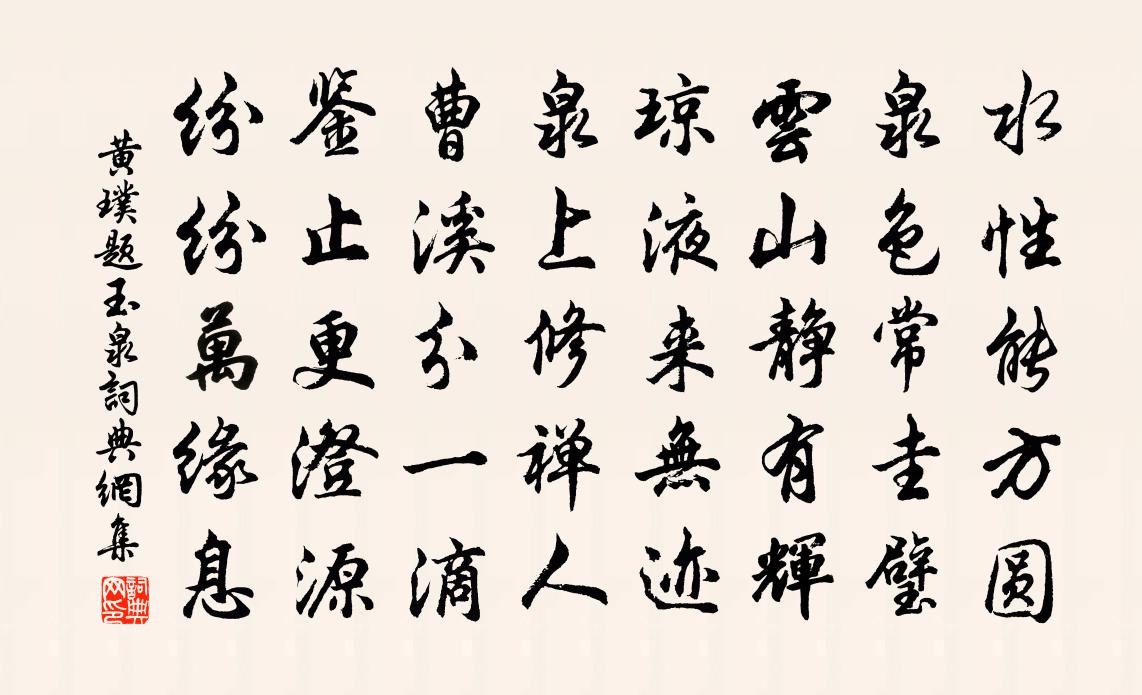 水性能方圆
泉色常圭璧
雲山静有輝
琼液来無迹
泉上修禅人
曹溪分一滴
鉴止更澄源
纷纷萬缘息
黄璞题玉泉詞典網集
詞典网印